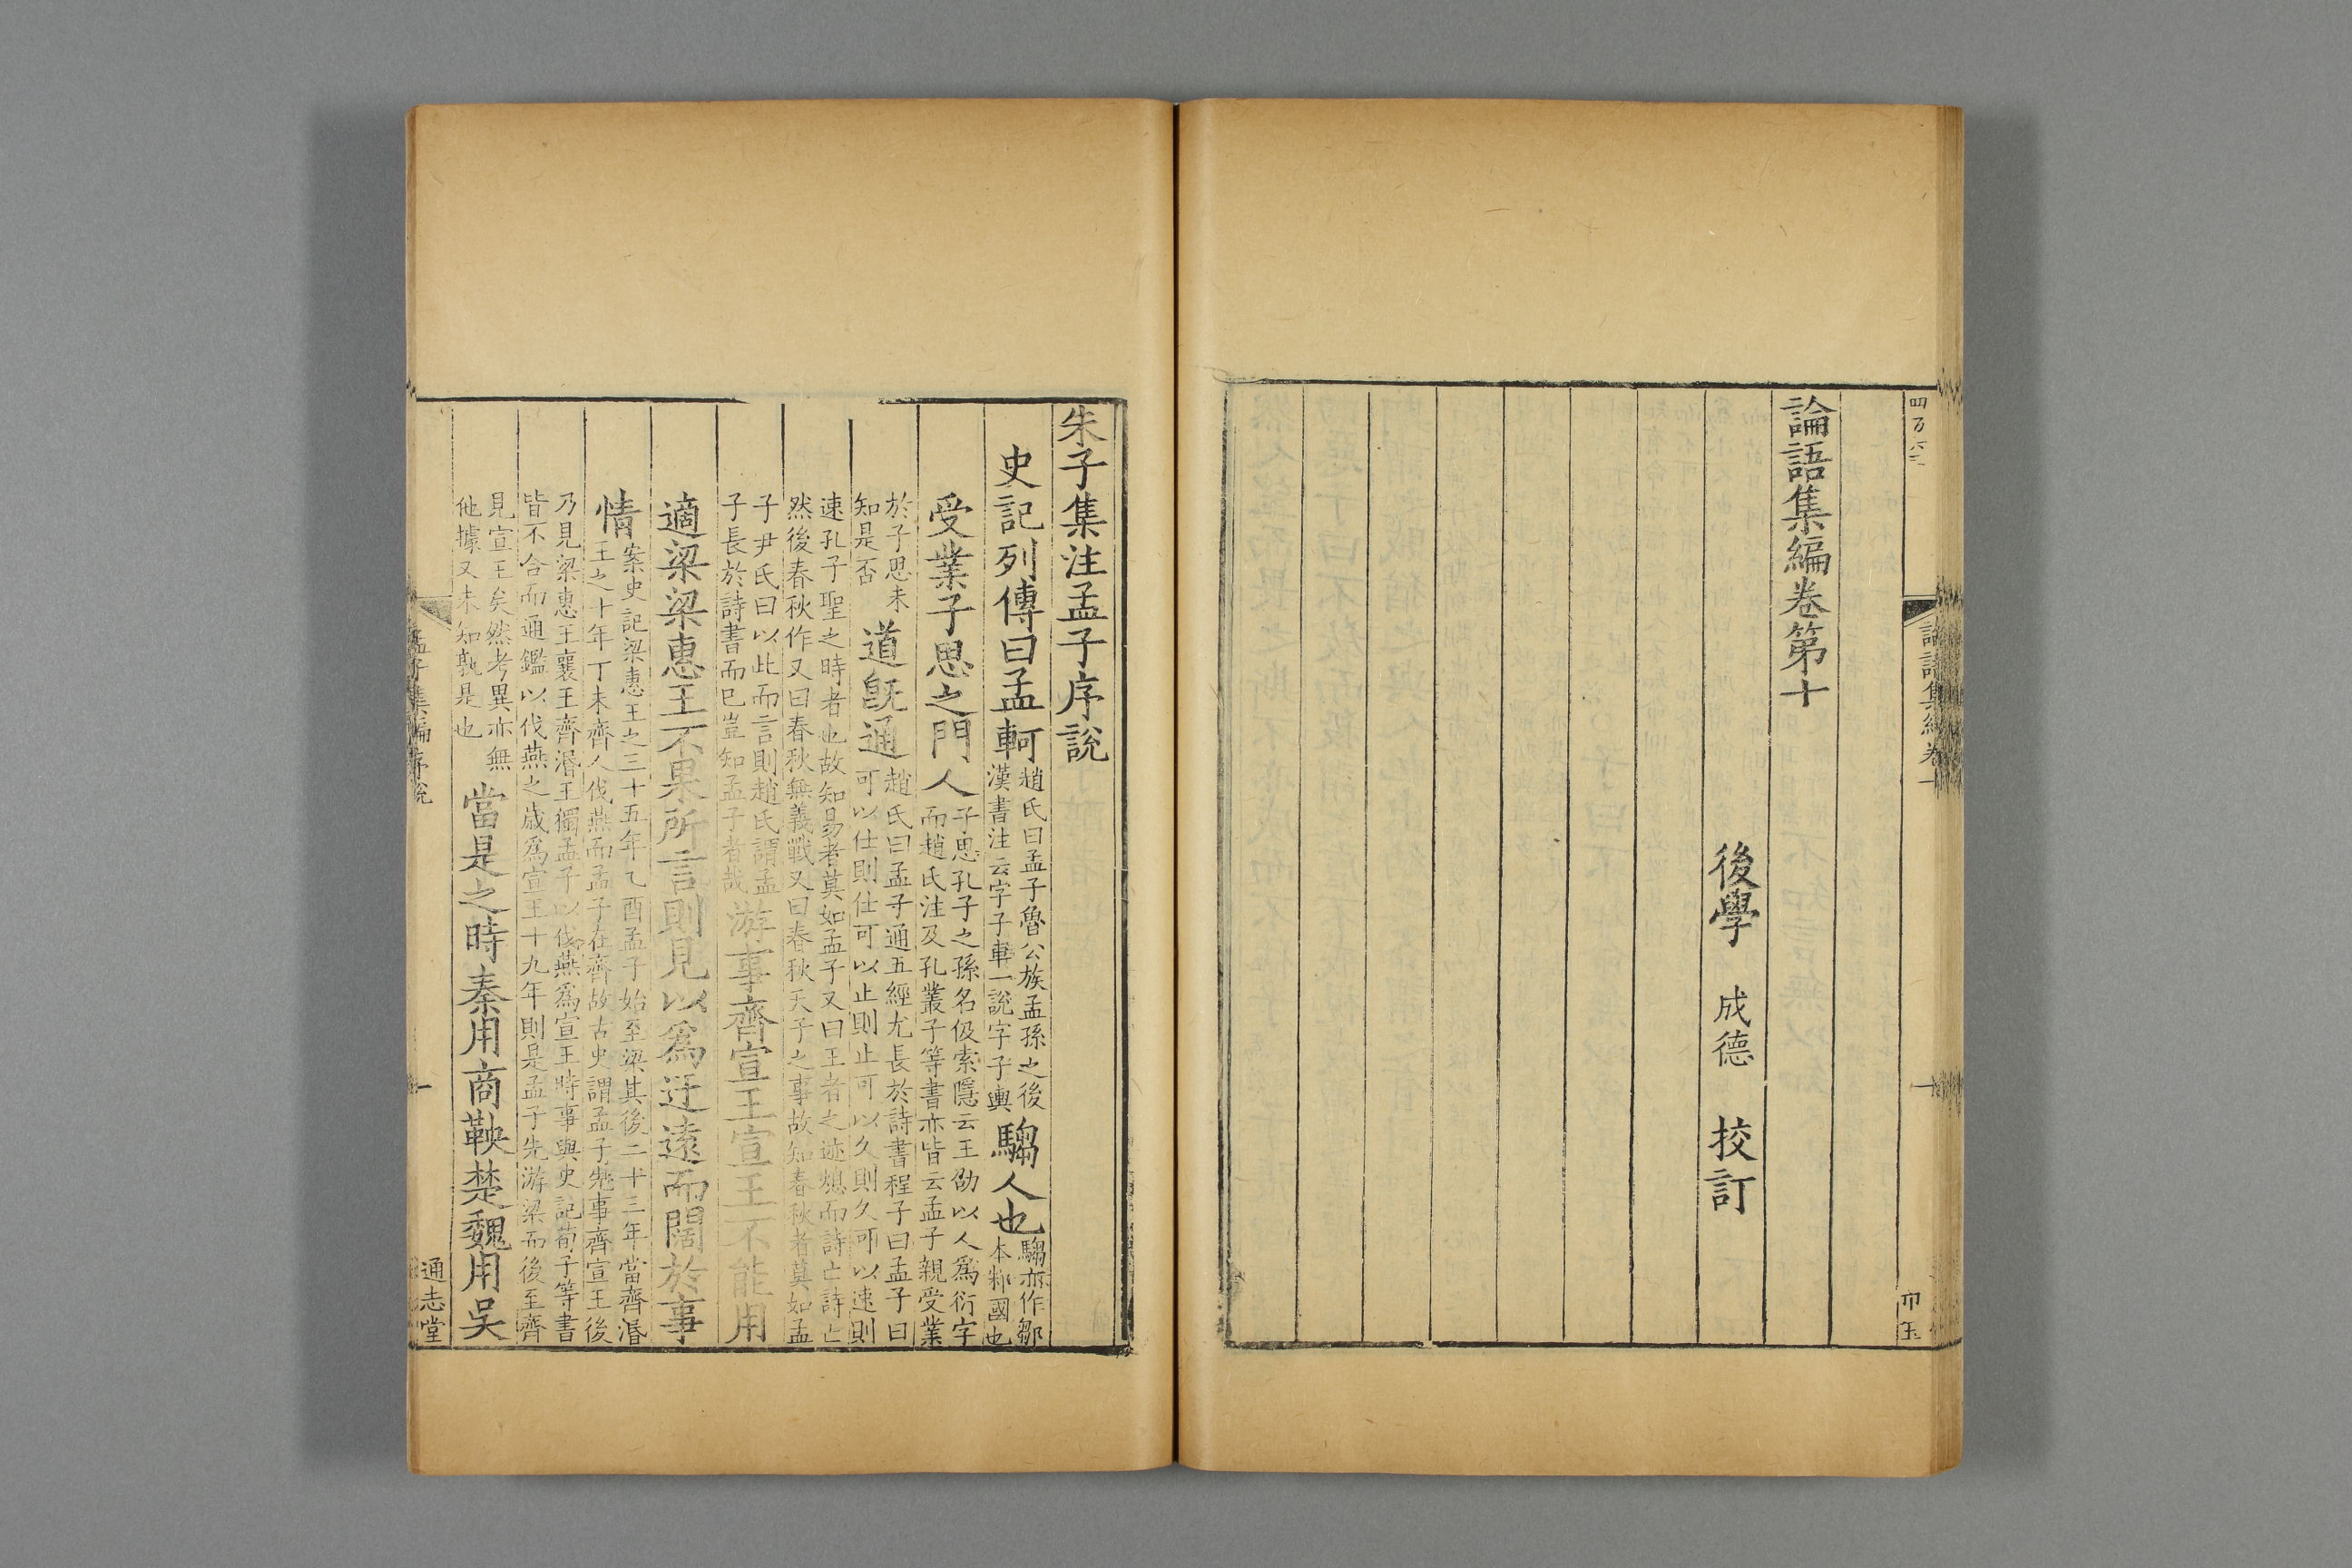 論語集編卷第十
後學 成德 校訂
朱子集注孟子序說
史記列傳曰孟軻趙氏曰孟子魯公族孟孫之後漢書注云字子車一說字子輿騶人也騶亦作鄒本邾國也
受業子思之門人子思孔子之孫名伋索隱云王劭以人爲衍字而趙氏注及孔叢子等書亦皆云孟子親受業
於子思未知是否道旣通趙氏曰孟子通五經尤長於詩書程子曰孟子曰可以仕則仕可以止則止可以久則久可以速則
速孔子聖之時者也故知易者莫如孟子又曰王者之迹熄而詩亡詩亡然後春秋作又曰春秋無義戰又曰春秋天子之事故知春秋者莫如孟
子尹氏曰以此而言則趙氏謂孟子長於詩書而已豈知孟子者哉游事齊宣王宣王不能用
適梁梁惠王不果所言則見以爲迂遠而闊於事
情案史記梁惠王之三十五年乙酉孟子始至梁其後二十三年當齊湣王之十年丁未齊人伐燕而孟子在齊故古史謂孟子先事齊宣王後
乃見梁惠王襄王齊湣王獨孟子以伐燕爲宣王時事與史記荀子等書皆不合而通鑑以伐燕之歲爲宣王十九年則是孟子先游梁而後至齊
見宣王矣然考異亦無他據又未知孰是也當是之時秦用商鞅楚魏用吳
孟子集編序說
一
通志堂